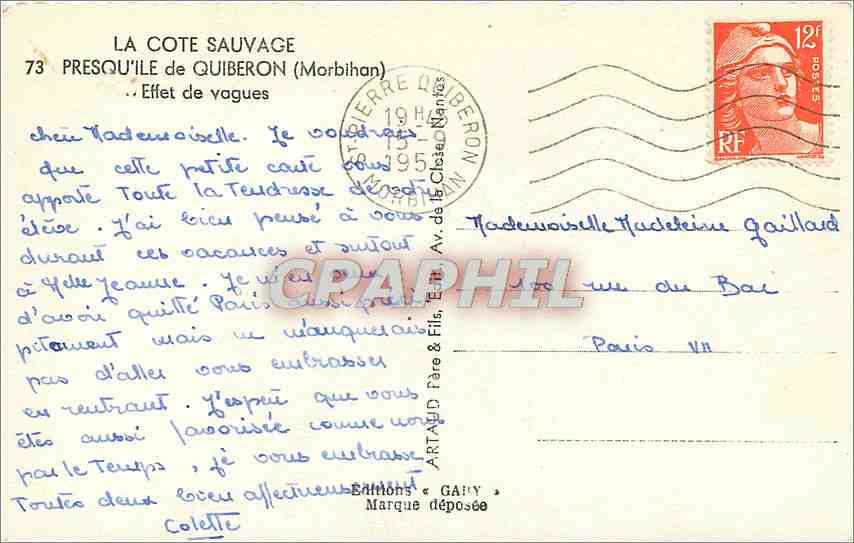 LA COTE SAUVAGE
73 PRESQU'ILE de QUIBERON (Morbihan)
Effet de vagues
chère Mademoiselle. Je voudrais
que cette petite carte vous
apporte toute la tendresse de votre
élève. J'ai bien pensé à vous
durant ces vacances et surtout
à Melle Jeanne. Je m'en
d'avoir quitté Paris aussi préci
pitament mais ne manquerais
pas d'aller vous embrasser
en rentrant. J'espère que vous
êtes aussi favorisée comme nous
par le temps, je vous embrasse
toutes deux bien affectueusement
Colette
ST PIERRE QUIBERON
19H45
15 - 9
195
MORBIHAN
12F
POSTES
RF
ARTAUD Père & Fils, Édit. Av. de la Close, Nantes
Mademoiselle Madeleine Gaillard
100 rue du Bac
Paris VII
Editions « GABY »
Marque déposée
CPAPHIL